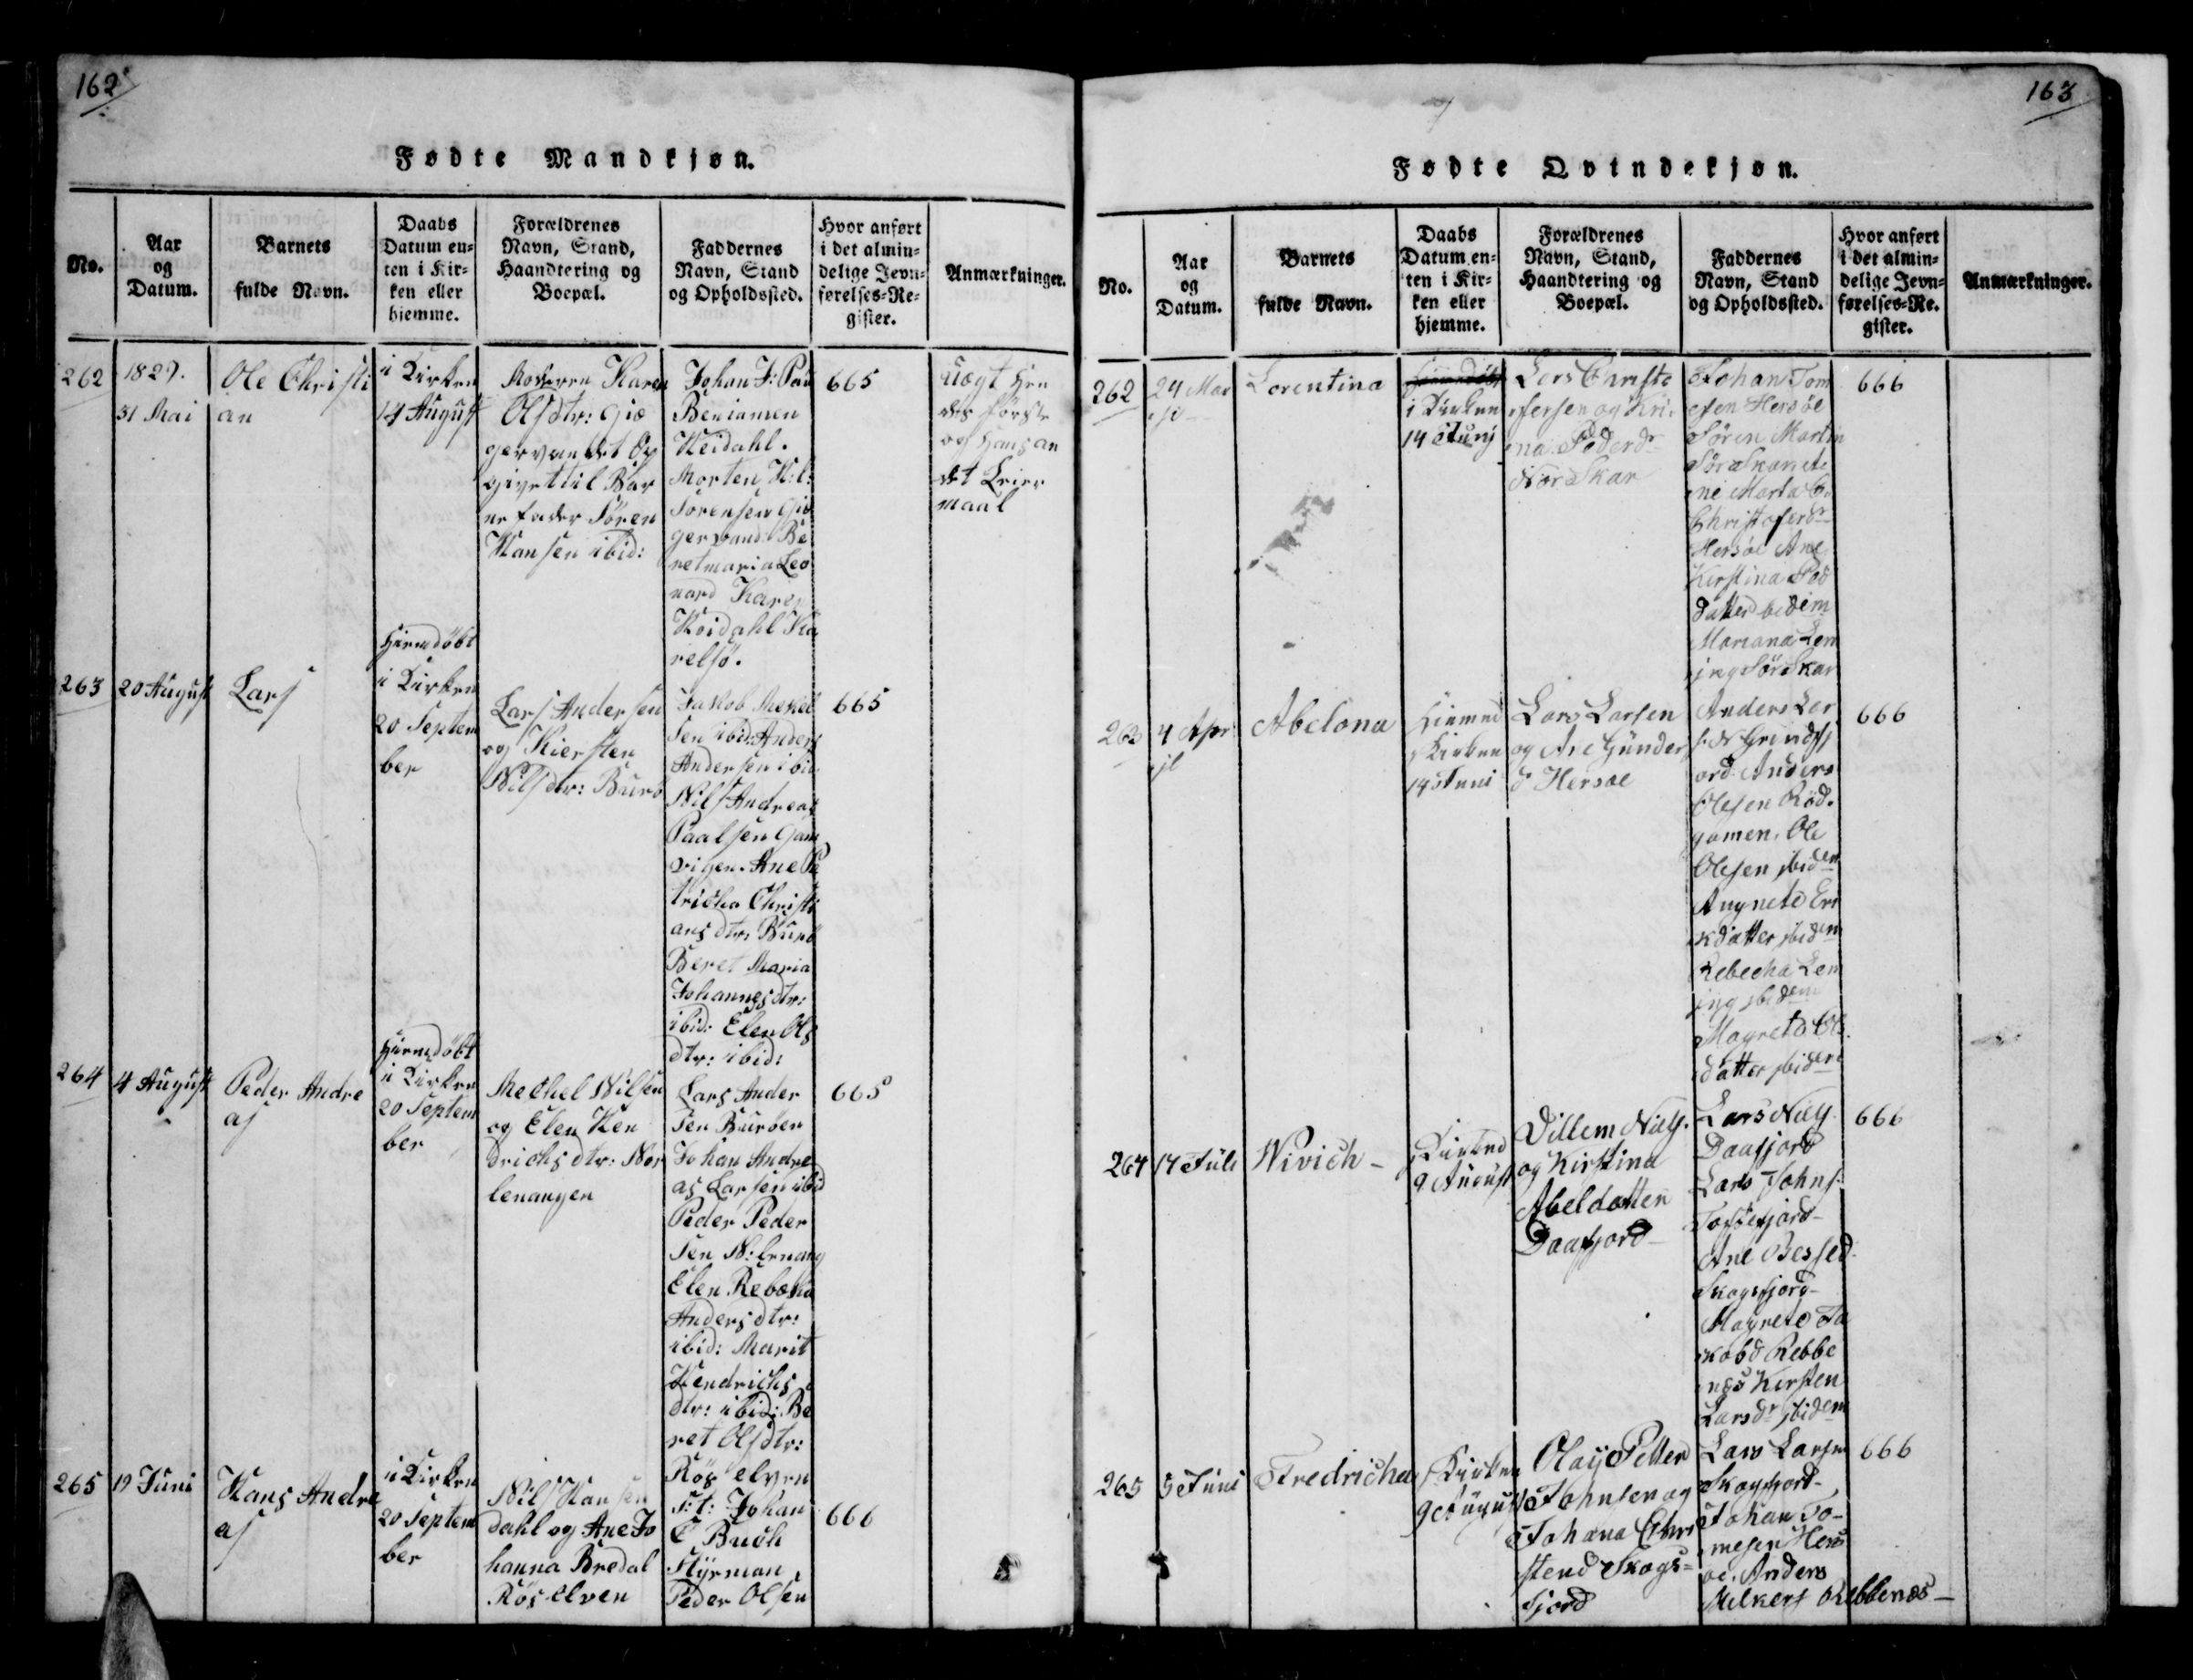 162
Fødte Mandkjøn.
No.
Aar
og
Datum.
Barnets
fulde Navn.
Daabs
Datum en-
ten i Kir-
ken eller
hjemme.
Forældrenes
Navn, Stand,
Haandtering og
Boepæl.
Faddernes
Navn, Stand
og Opholdssted.
Hvor anført
i det almin-
delige Jevn-
førelses-Re-
gister.
Anmærkninger.
262
1829.
31 Mai
Ole Christi
an
i Kirken
14 August
Moderen Karen
Olsdtr: Giø
gervandet Op
givet til Bar
ne fader Søren
Hansen ibid:
Johan
Beniamen
Heidahl.
Morten
Sørensen Giø
gervand: Be
retmaria Leo
nard Karen
Heidahl Ka
relsø.
665
Uægt Hen
des første
og Hans an
det Leier
maal
263
20 August
Lars
Hiemdöbt
i Kirken
20 Septem
ber
Lars Andersen
og Kiersten
Nilsdtr: Burö
Jakob Mekel
sen ibid: Anders
Andersen ibid
Nils Andreas
Paalsen Gam
vigen. Ane Pe
tricha Christi
ans dtr: Burö
Beret Maria
Johannesdtr:
ibid: Elen Ols
dtr: ibid:
665
264
4 August
Peder Andre
as
Hiemdöbt
i Kirken
20 Septem
ber
Mechel Nilsen
og Elen Hen
drichsdtr: Nor
lenangen
Lars Ander
sen Buröen
Johan Andre
as Larsen ibid
Peder Peder
sen N: lenang
Elen Rebekka
Andersdtr:
ibid: Marit
Hendrichs
dtr: ibid: Be
ret Olsdtr:
Röselven
665
265
19 Juni
Hans Andre
as
i Kirken
20 Septem
ber
Nils Hansen
Dahl og Ane Jo
hanna Bredal
Röselven
S:t: Johan
C Buch
Styrman
Peder Olsen
666
163
Fødte Qvindekjøn.
No.
Aar
og
Datum.
Barnets
fulde Navn.
Daabs
Datum en-
ten i Kir-
ken eller
hjemme.
Forældrenes
Navn, Stand,
Haandtering og
Boepæl.
Faddernes
Navn, Stand
og Opholdssted.
Hvor anført
i det almin-
delige Jevn-
førelses-Re-
gister.
Anmærkninger.
262
24 Mar
Lorentina
i Kirken
14 Junj
Lars Christo
fersen og
Pederdr
Nor Skar
Johan Tom
esen Hersöe
Sören Martin
Christoferdr
Hersöe Ane
Kirstina Ped
datter
Mariana Lem
jng Sör Skar
666
263
4 Apr
jl
Abelona
i Kirken
14 Juni
Lars Larsen
og Ane Gunder
d Hersöe
Anders Lar
s: Gründfj
ord: Anders
Olesen Röd.
gamen. Ole
Olesen jbidem
Angnete Eri
kdatter jbidem
Rebecha Lem
jng jbidem
Magrete Ols
datter jbidem
666
264
14 Juli
Wivich-
i Kirken
9 August
Villem Niels.
og Kirstina
Abeldatter
Daafjord
Lars Niels
Daafjord
Lars Johns:
Toftefjord-
Ane Besfed
Skogsfjord-
Magrete Ja
kobd Rebbe
næs Kirsten
Larsdr jbidem
666
265
5 Juni
Fredricha
i Kirken
9 August
Olaij Petter
Johnsen og
Johana Chri
stend Skogs=
fjord
Lars Larsen
Skogsfjord-
Johan To-
mesen Hers
öe. Anders
Melkers Rebbenæs-
666